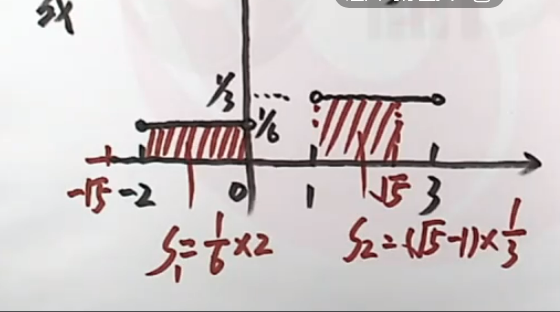 1/3
1/6
-√5 -2 0 1 √5 3
S₁=1/6×2
S₂=(√5-1)×1/3